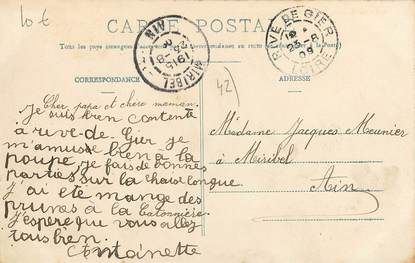 10 €
CARTE POSTALE
Tous les pays étrangers
CORRESPONDANCE
ADRESSE
MIRIBEL
AIN
RIVE DE GIER
LOIRE
42
Cher papa et chère maman.
Je suis bien contente
a rive-de-Gier je
m'amuse bien à la
poupe, je fais de bonnes
parties sur la chaise longue
j'ai eté mangé des
prunes à la Catonnière
j'espère que vous allez
tous bien.
Antoinette
Madame Jacques Meunier
à Miribel
Ain